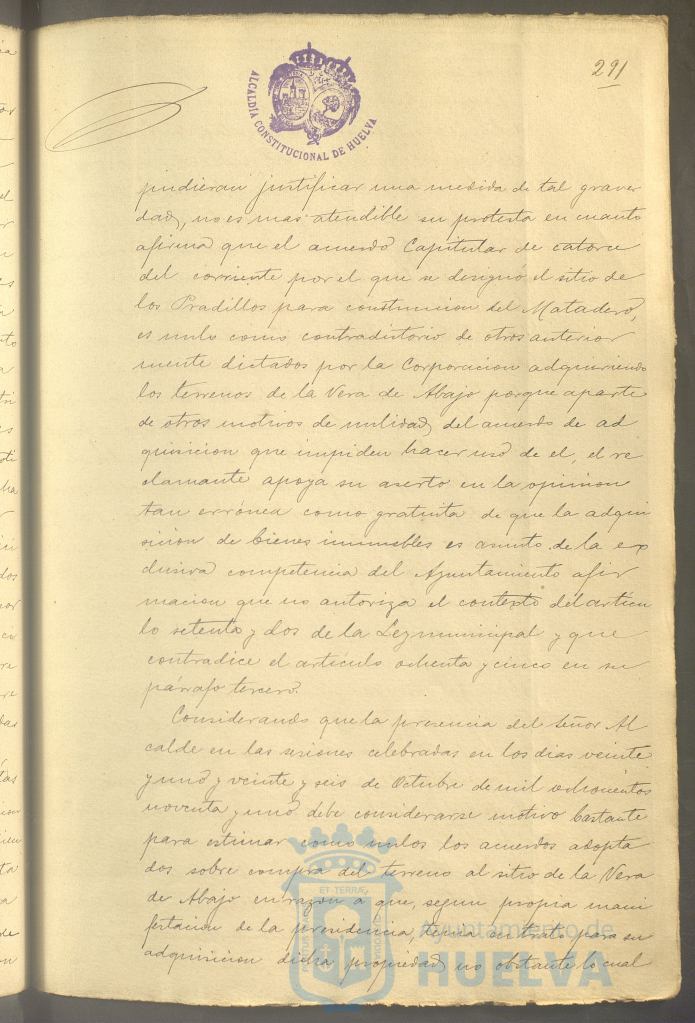 291
ALCALDÍA CONSTITUCIONAL DE HUELVA
pudieran justificar una medida de tal grave
dad, no es mas atendible su protesta en cuanto
afirma que el acuerdo Capitular de catorce
del corriente por el que se designó el sitio de
los Pradillos para construccion del Matadero,
es nulo como contradictorio de otros anterior
mente dictados por la Corporacion adquiriendo
los terrenos de la Vera de Abajo porque aparte
de otros motivos de nulidad del acuerdo de ad
quisicion que impiden hacer uso de el, el re
clamante apoya su aserto en la opinion
tan errónea como gratuita de que la adqui
sicion de bienes inmuebles es asunto de la ex
clusiva competencia del Ayuntamiento afir
macion que no autoriza el contexto del articu
lo setenta y dos de la Ley municipal y que
contradice el artículo ochenta y cinco en su
párrafo tercero.
Considerando que la presencia del Señor Al
calde en las sesiones celebradas en los dias veinte
y uno y veinte y seis de Octubre de mil ochocientos
noventa y uno debe considerarse motivo bastante
para estimar como nulos los acuerdos adopta
dos sobre compra del terreno al sitio de la Vera
de Abajo en razon a que, segun propia mani
festacion de la presidencia, tenia en trato para su
adquisicion dicha propiedad no obstante lo cual
ET TERRÆ
Ayuntamiento de
HUELVA